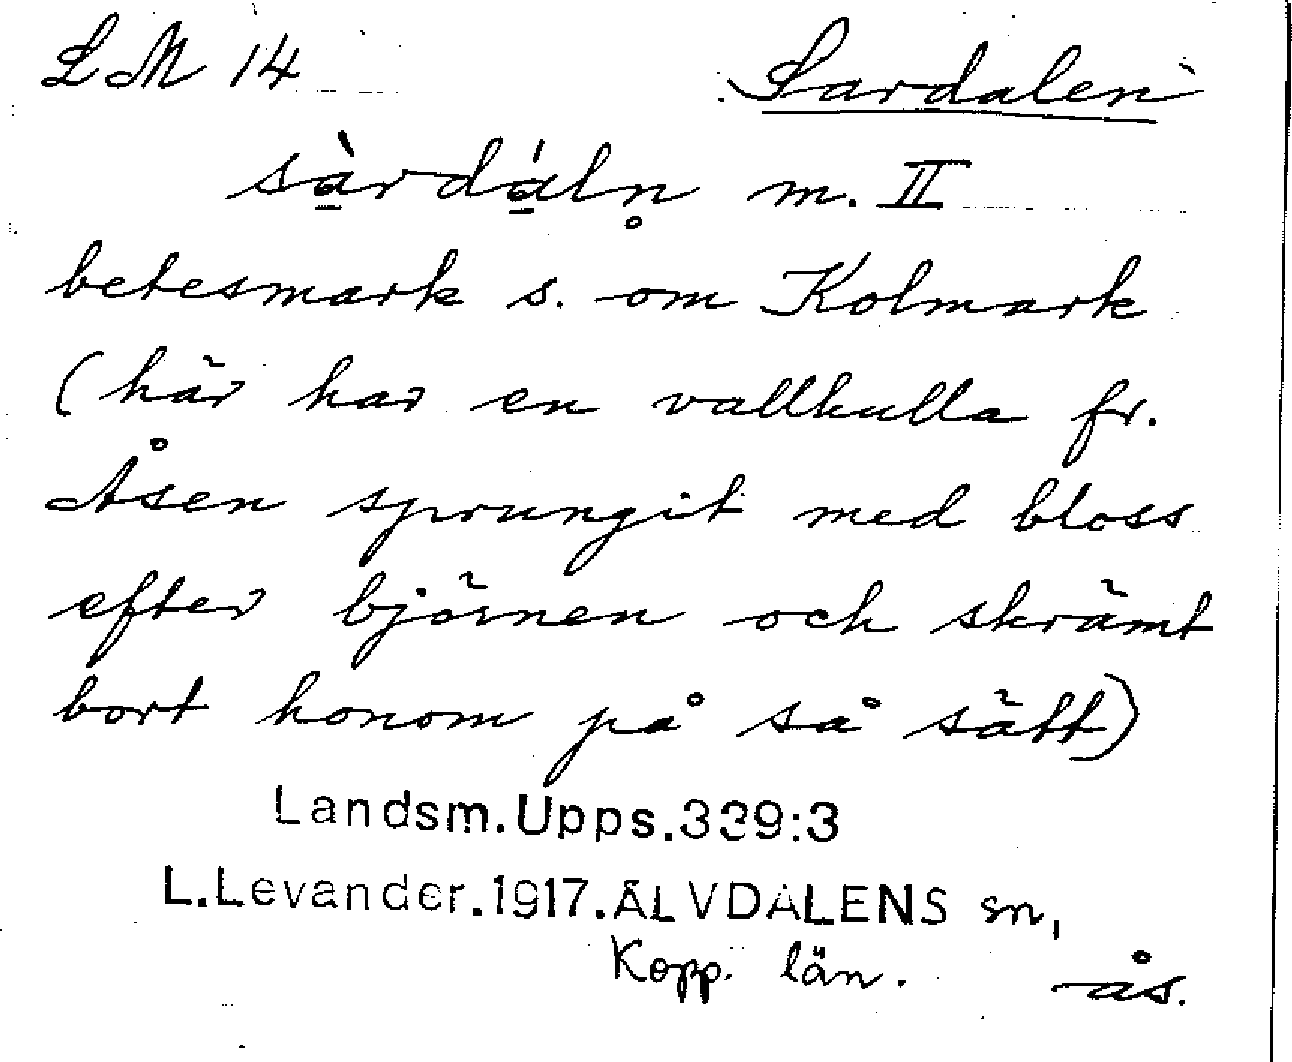 LM 14 Sardalen
sàrdáln̥ m. II
betesmark s. om Kolmark
(här har en vallkulla fr.
Åsen sprungit med bloss
efter björnen och skrämt
bort honom på så sätt)
Landsm.Upps.339:3
L.Levander.1917.ÄLVDALENS sn,
Kopp. län. ås.